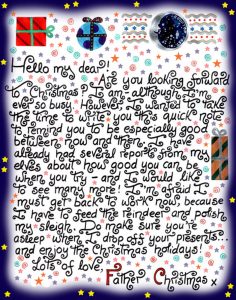 Hello my dear?!
Are you looking forward
to Christmas? I am, although I'm
ever so busy. However I wanted to take
the time to write you this quick note
to remind you to be especially good
between now and then. I have
already had several reports from my
elves about how good you can be
when you try - and I would like
to see many more! I'm afraid I
must get back to work now, because
I have to feed the reindeer and polish
my sleigh. Do make sure you're
asleep when I drop off your presents...
and enjoy the Christmas holidays!
Lots of love,
Father Christmas x